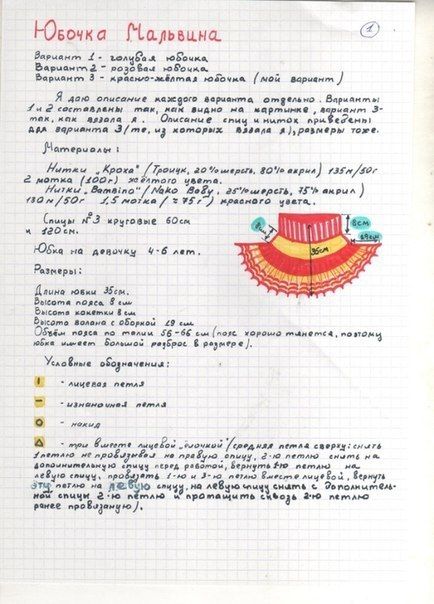 1
Юбочка Мальвина
Вариант 1 - голубая юбочка
Вариант 2 - розовая юбочка
Вариант 3 - красно-жёлтая юбочка (мой вариант)
Я даю описание каждого варианта отдельно. Варианты
1 и 2 составлены так, как видно на картинке, вариант 3-
так, как вязала я. Описание спиц и ниток приведены
для варианта 3 (те, из которых вязала я), размеры тоже.
Материалы:
Нитки "Кроха" (Троицк, 20% шерсть, 80% акрил) 135м/50г
2 мотка (100г) жёлтого цвета.
Нитки "Bambino" (Nako Baby, 25% шерсть, 75% акрил)
130м/50г 1,5 мотка (≈75г) красного цвета.
Спицы №3 круговые 60см
и 120см.
8см
8см
35см
19см
Юбка на девочку 4-6 лет.
Размеры:
Длина юбки 35см.
Высота пояса 8см
Высота кокетки 8см
Высота волана с оборкой 19см
Объём пояса по талии 56-66см (пояс хорошо тянется, поэтому
юбка имеет большой разброс в размере).
Условные обозначения:
I - лицевая петля
- - изнаночная петля
О - накид
Δ - три вместе лицевой "ёлочкой" (средняя петля сверху: снять
1 петлю не провязывая на правую спицу, 2-ю петлю снять на
дополнительную спицу перед работой, вернуть 1-ю петлю на
левую спицу, провязать 1-ю и 3-ю петлю вместе лицевой, вернуть
эту петлю на левую спицу, на левую спицу снять с дополнитель-
ной спицы 2-ю петлю и протащить сквозь 2-ю петлю
ранее провязаную).